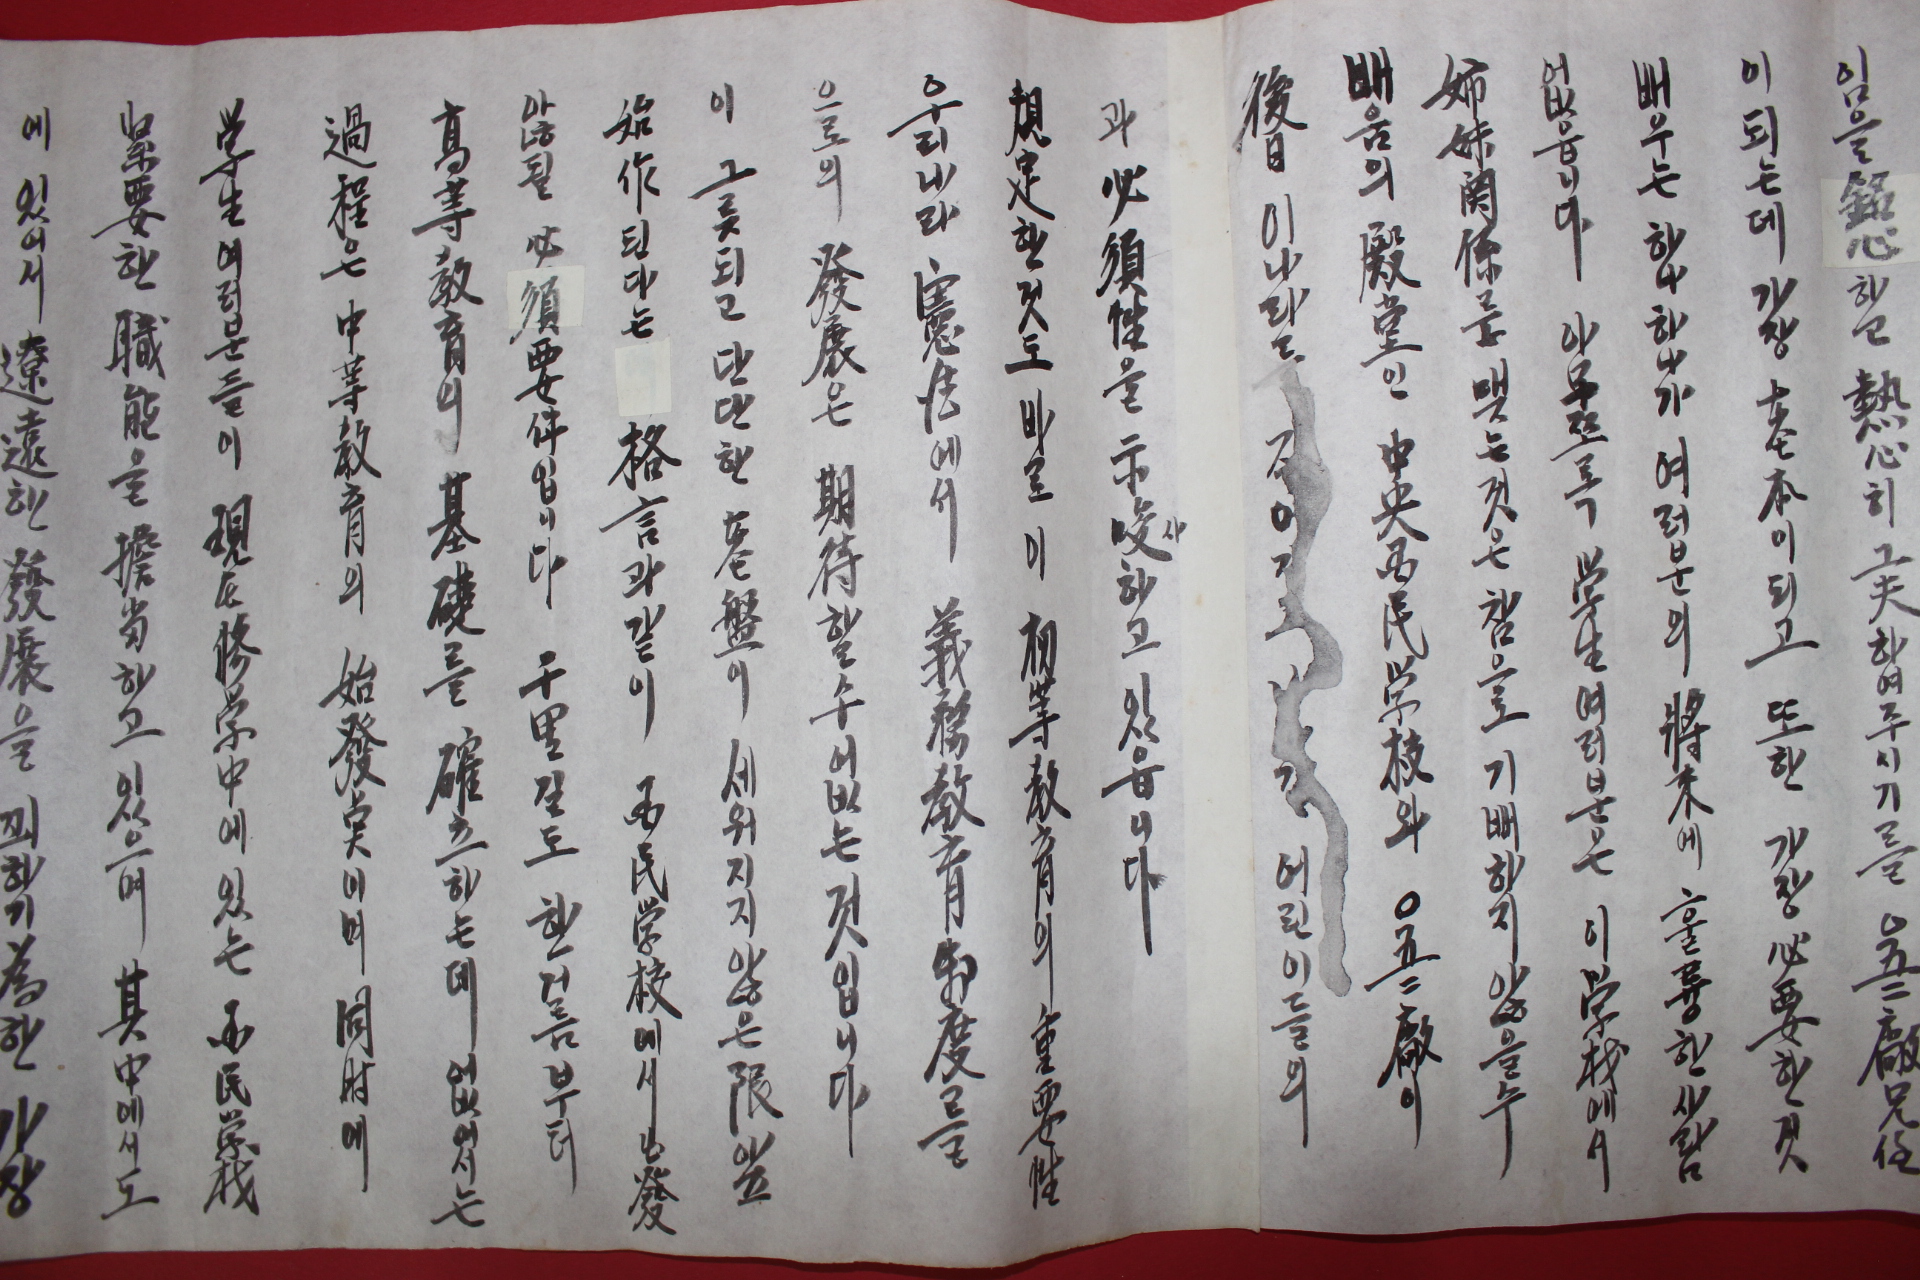 에 있어서 遼遠한 發展을 꾀하기 爲한 가장
緊要한 職能을 擔當하고 있으며 其中에서도
学生 여러분들이 現在 修学中에 있는 国民学校
過程은 中等教育의 始發点이며 同時에
高等教育의 基礎를 確立하는데 없어서는
않될 必須要件입니다 千里길도 한걸음부터
始作된다는 格言과 같이 国民学校에서 出發
이 그릇되고 단단한 基盤이 세워지지 않은 限 앞
으로의 發展은 期待할수 없는 것입니다
우리나라 憲法에서 義務教育制度를
規定한것도 바로 이 初等教育의 重要性
과 必須性을 示唆사하고 있읍니다
後日 이나라를 어린이들의
배움의 殿堂인 中央国民学校와 O五二廠이
姉妹関係를 맺는것은 참으로 기뻐하지 않을수
없읍니다 아무쪼록 学生 여러분은 이 学校에서
배우는 하나하나가 여러분의 將來에 훌륭한 사람
이 되는데 가장 基本이되고 또한 가장 必要한 것
임을 銘心하고 熱心히 工夫하여주시기를 O五二廠